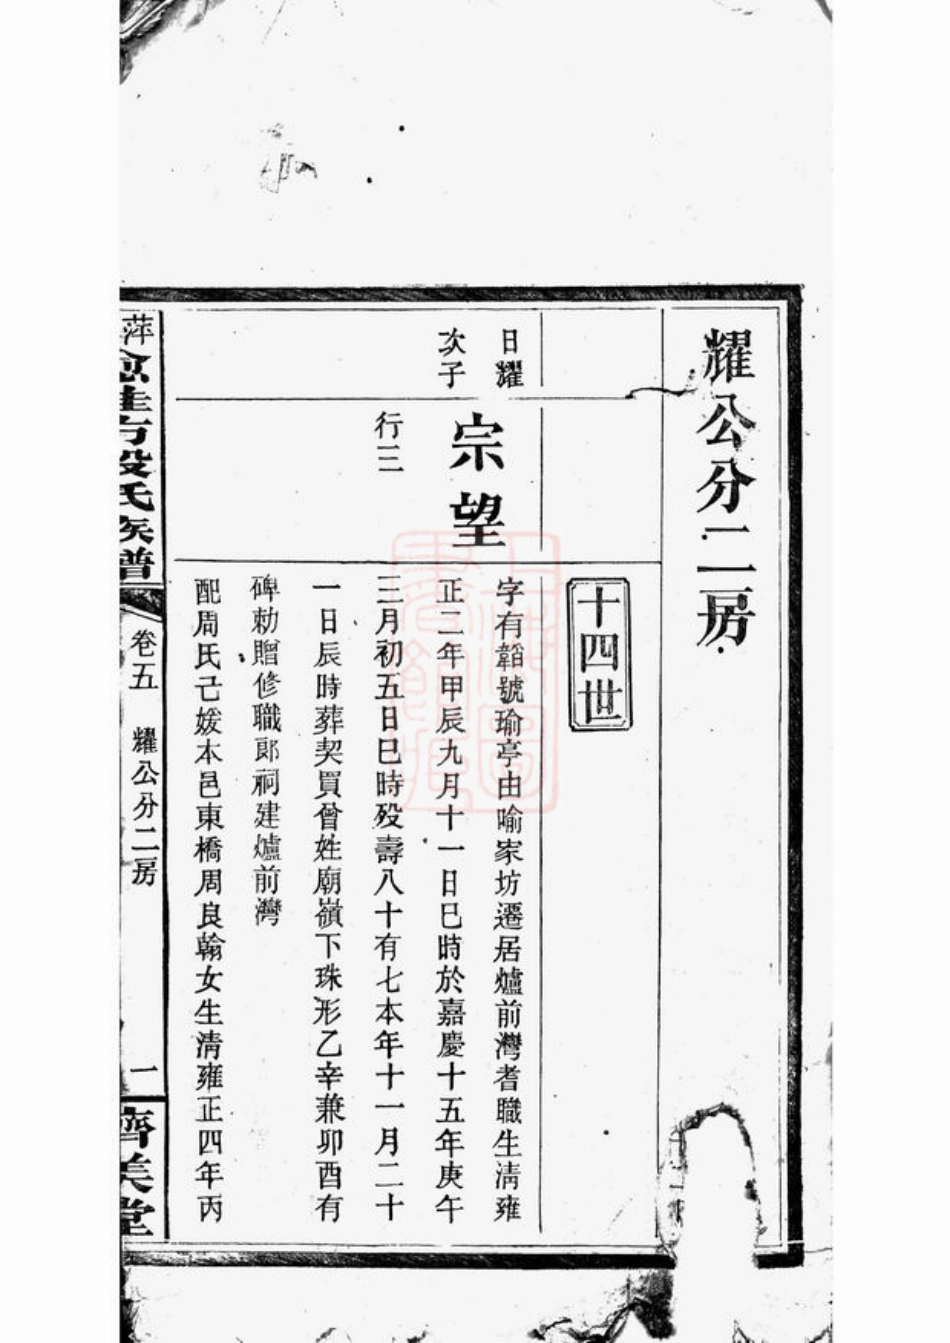 耀公分二房
十四世
日耀
次子
宗望
行三
字有韜號瑜亭由喻家坊遷居爐前灣耆職生清雍
正二年甲辰九月十一日巳時於嘉慶十五年庚午
三月初五日巳時歿壽八十有七本年十一月二十
一日辰時葬契買曾姓廟嶺下珠形乙辛兼卯酉有
碑勅贈修職郎祠建爐前灣
配周氏己媛本邑東橋周良翰女生清雍正四年丙
萍
段氏族譜
卷五
耀公分二房
一
濟美堂